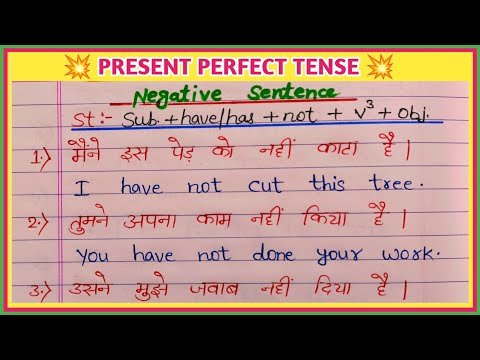 💥 PRESENT PERFECT TENSE 💥
Negative Sentence
St:- Sub.+have/has + not + v³ + obj.
1.) मैंने इस पेड़ को नहीं काटा है |
I have not cut this tree.
2.) तुमने अपना काम नहीं किया है |
You have not done your work.
3.) उसने मुझे जवाब नहीं दिया है |